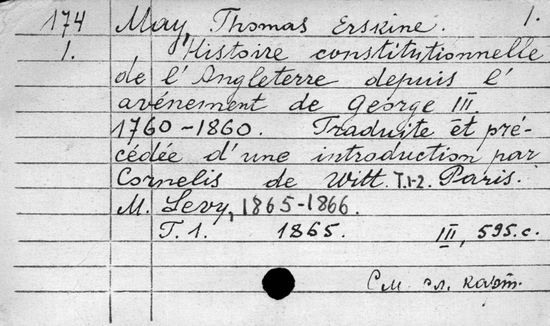 174 May, Thomas Erskine. 1.
1. Histoire constitutionnelle
de l'Angleterre depuis l'
avénement de George III.
1760-1860. Traduite et pré-
cédée d'une introduction par
Cornelis de Witt. T.1-2. Paris.
M. Levy, 1865-1866.
T. 1. 1865. III, 595.c.
См. гл. карт.